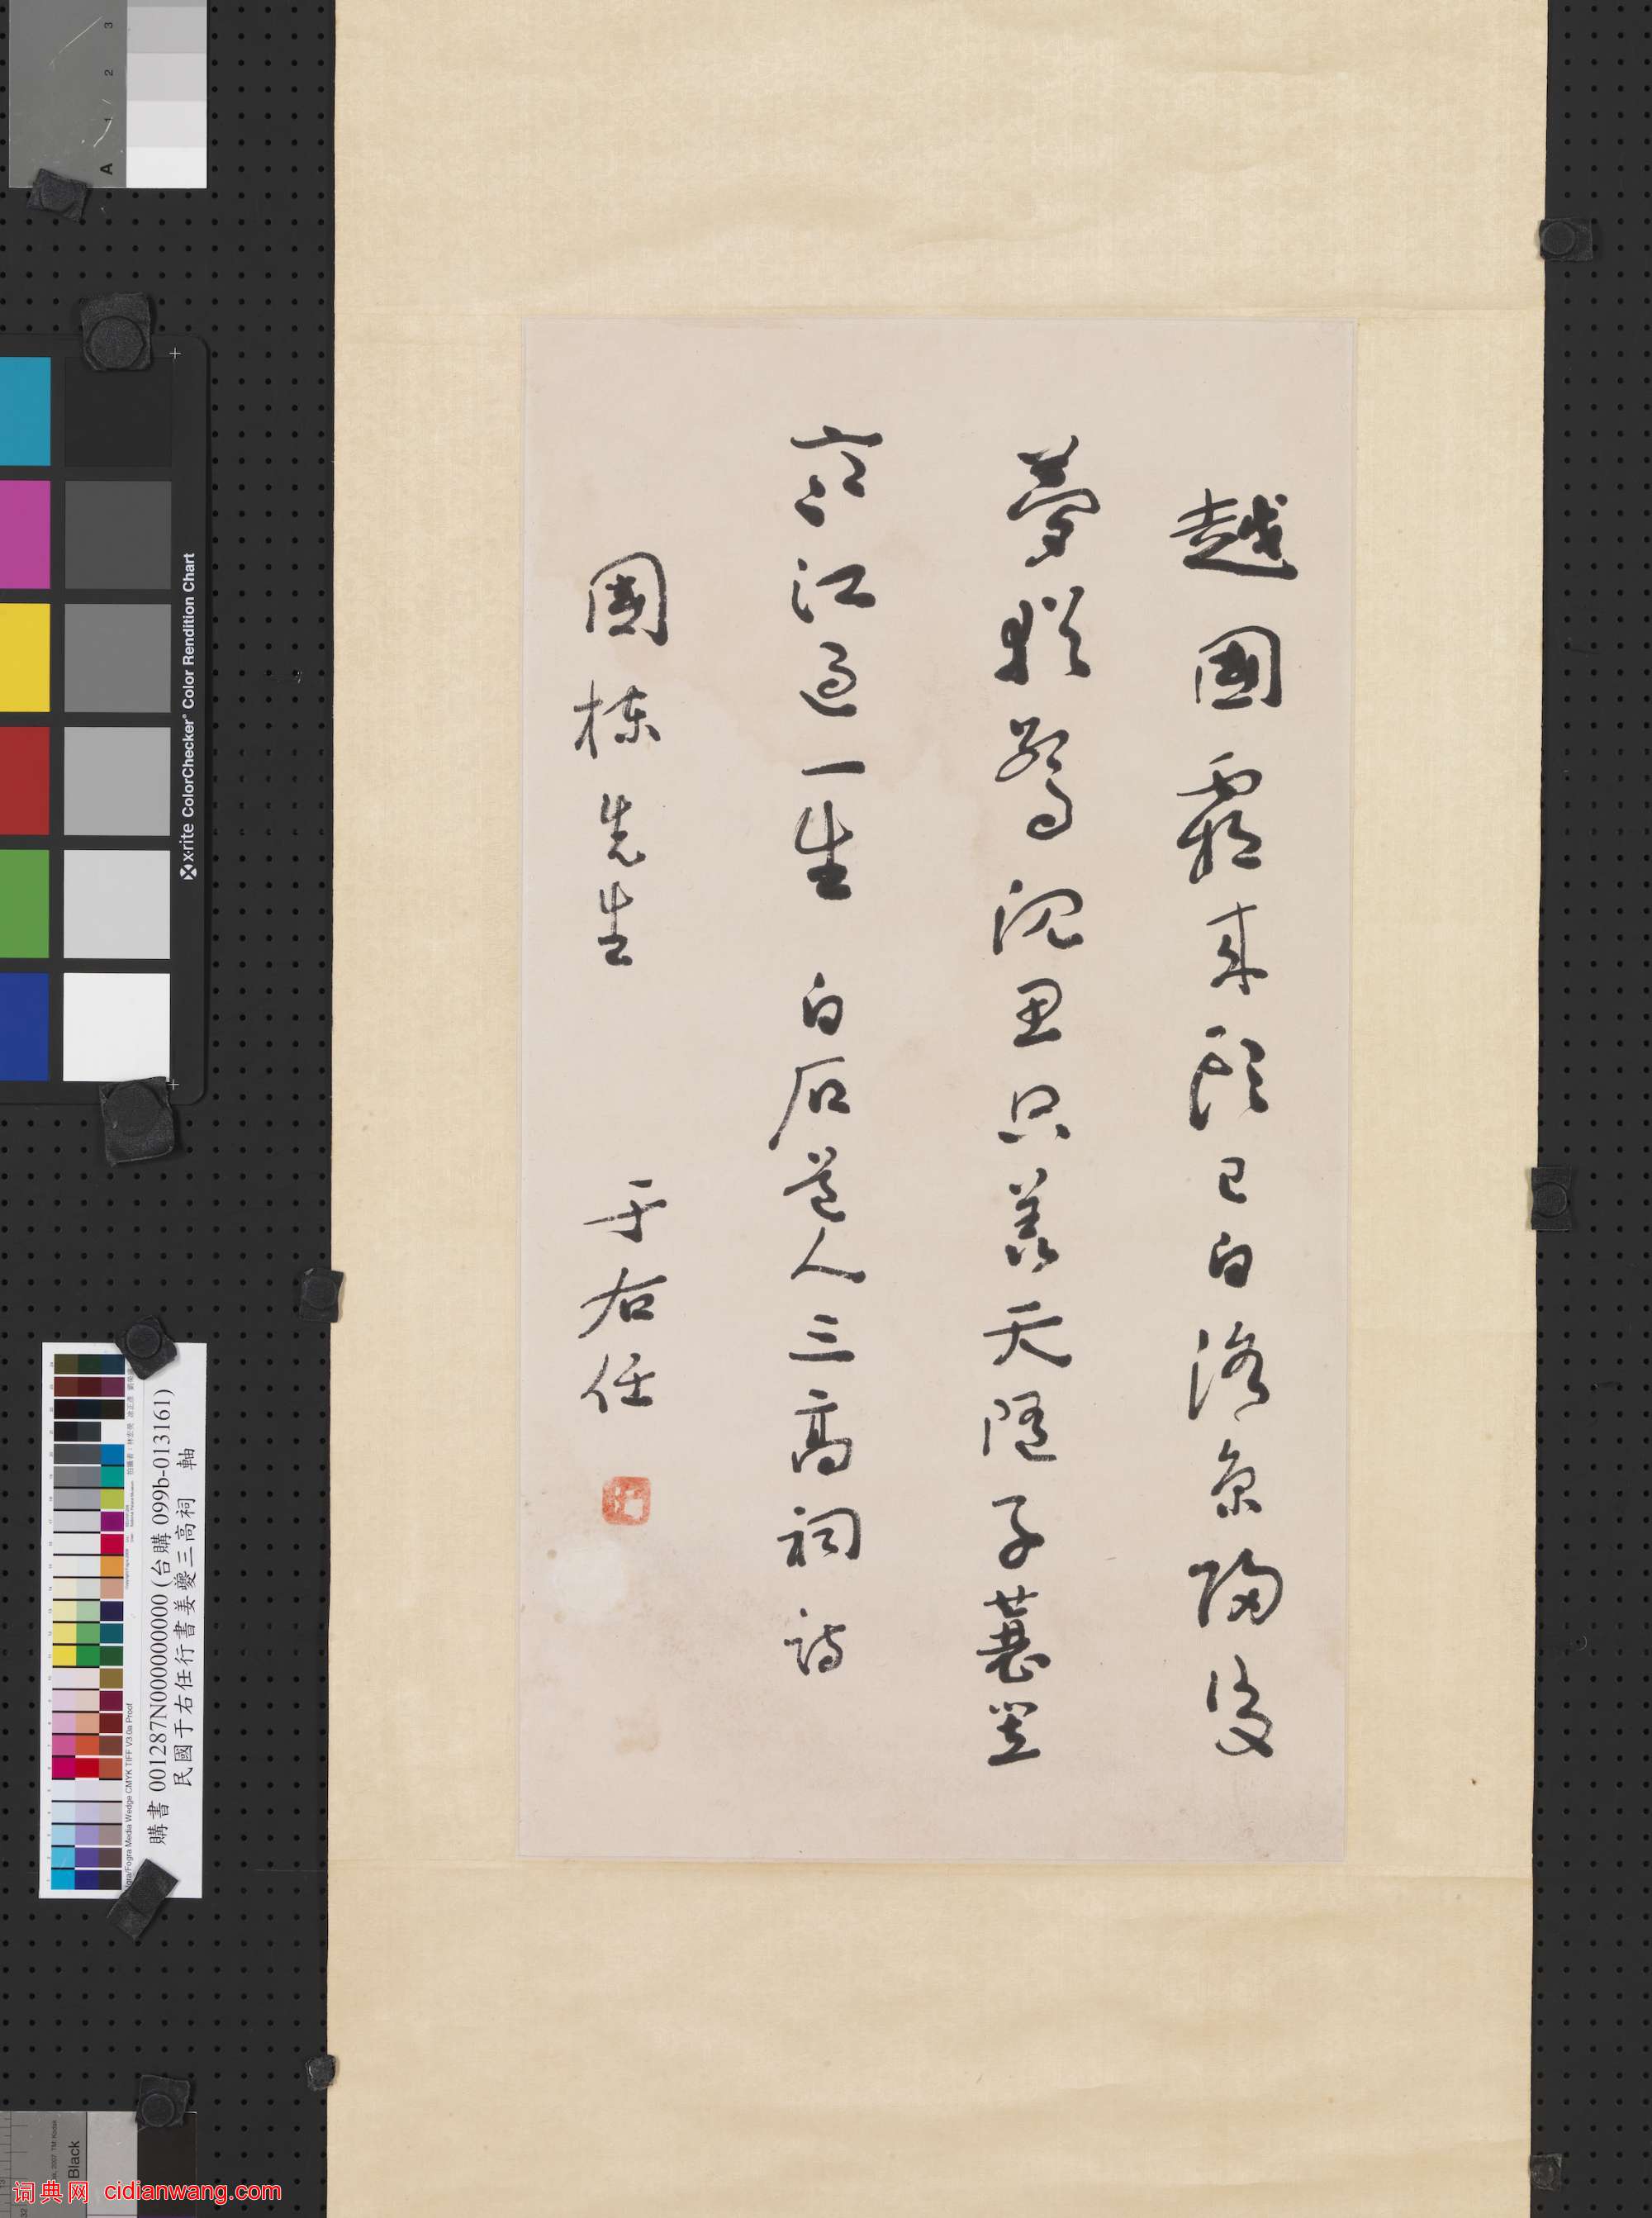 越國霸來頭已白洛京歸後
夢猶驚沈思只羨天隨子蓑笠
寒江過一生 白石道人三高祠詩
國棟先生 于右任
A 1 2 3
x-rite ColorChecker Color Rendition Chart
購書 001287N000000000 (台購 099b-013161)
民國于右任行書姜夔三高祠 軸
Ugra/Fogra Media Wedge CMYK TIFF V3.0a Proof
Black
词典网 cidianwang.com